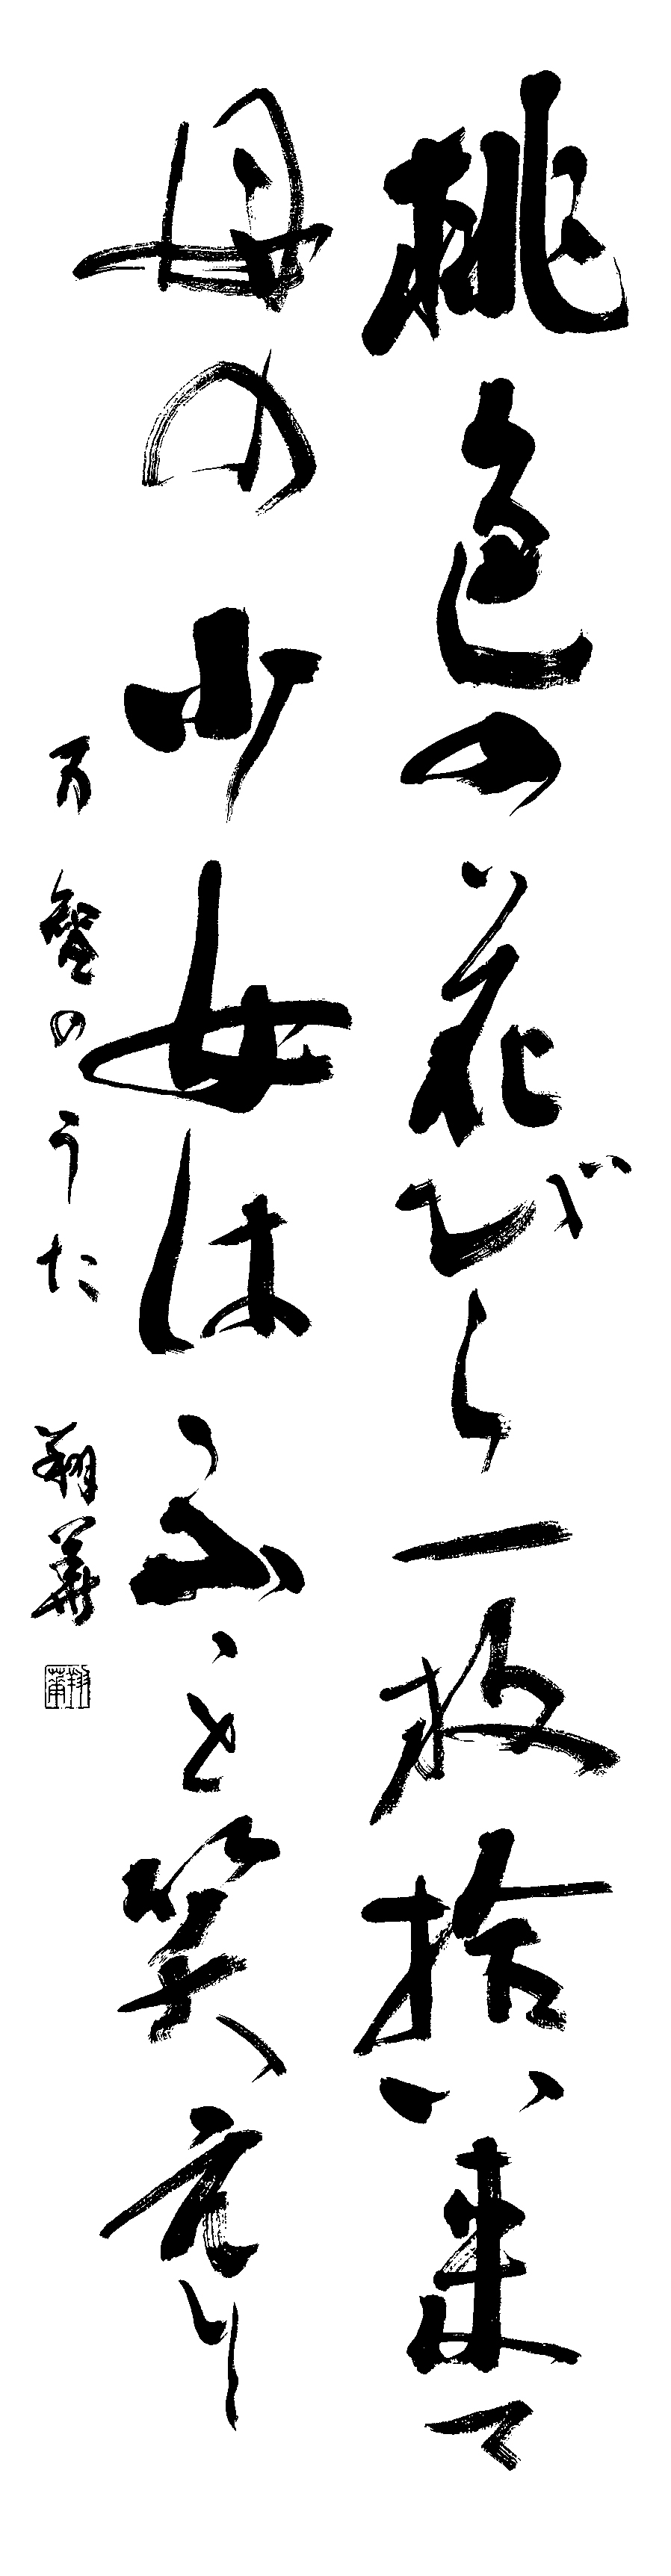 桃色の花びら一枚拾い来て
母の少女はふふと笑えり
万智のうた 翔華